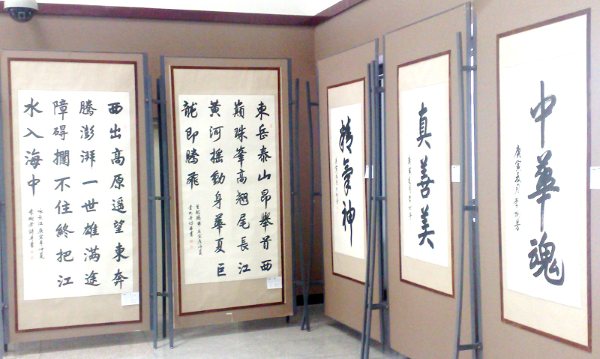 西出高原遥望東奔
騰澎湃一世雄滿途
障碍攔不住終把江
水入海中
東岳泰山昂舉首西
巔珠峯高翹尾長江
黄河摇動身華夏巨
龍即騰飛
精氣神
真善美
中華魂